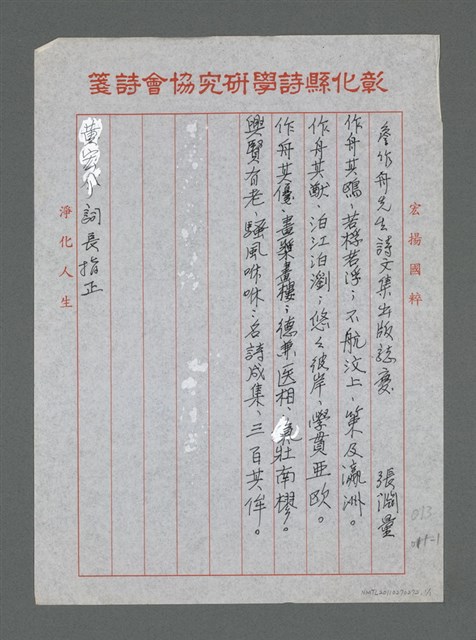 彰化縣詩學研究協會詩箋
宏揚國粹
詹作舟先生詩文集出版誌慶 張淵量
作舟其鷗、若桴若浮、不航汶上、策及瀛洲。
作舟其猷、泊江泊瀏、悠々彼岸、學貫亞欧。
作舟其優、畫槳畫樓、德兼医相、氣壯南樛。
興賢有老、騷風咻咻、名詩成集、三百其侔。
黃宏介詞長指正
淨化人生
013